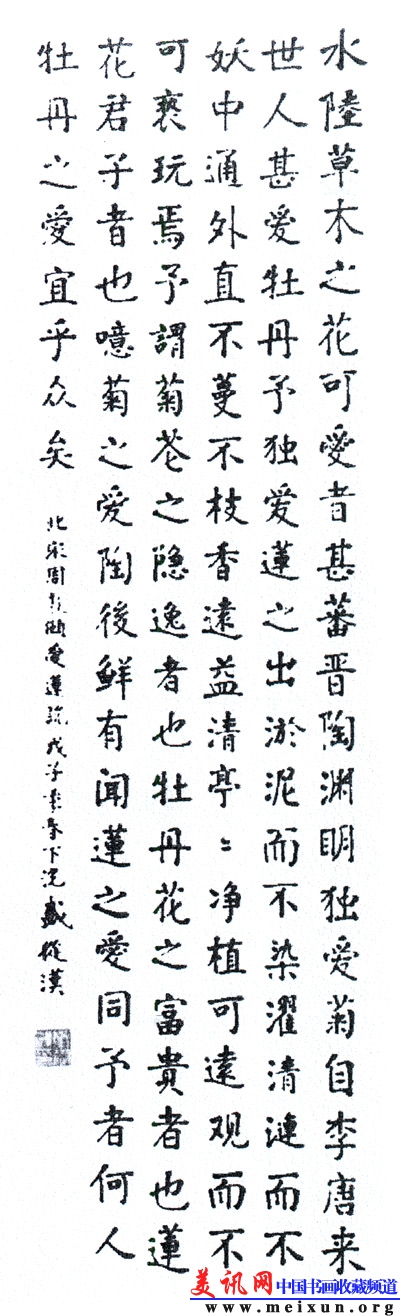 水陸草木之花可愛者甚蕃晋陶渊明独愛菊自李唐来
世人甚爱牡丹予独爱蓮之出淤泥而不染濯清漣而不
妖中通外直不蔓不枝香遠益清亭〻净植可遠观而不
可亵玩焉予謂菊花之隐逸者也牡丹花之富貴者也蓮
花君子者也噫菊之爱陶後鲜有闻蓮之愛同予者何人
牡丹之愛宜乎众矣
北宋周敦颐愛蓮説戊子春下浣盛漢
美讯网中国书画收藏频道
www.meixun.org